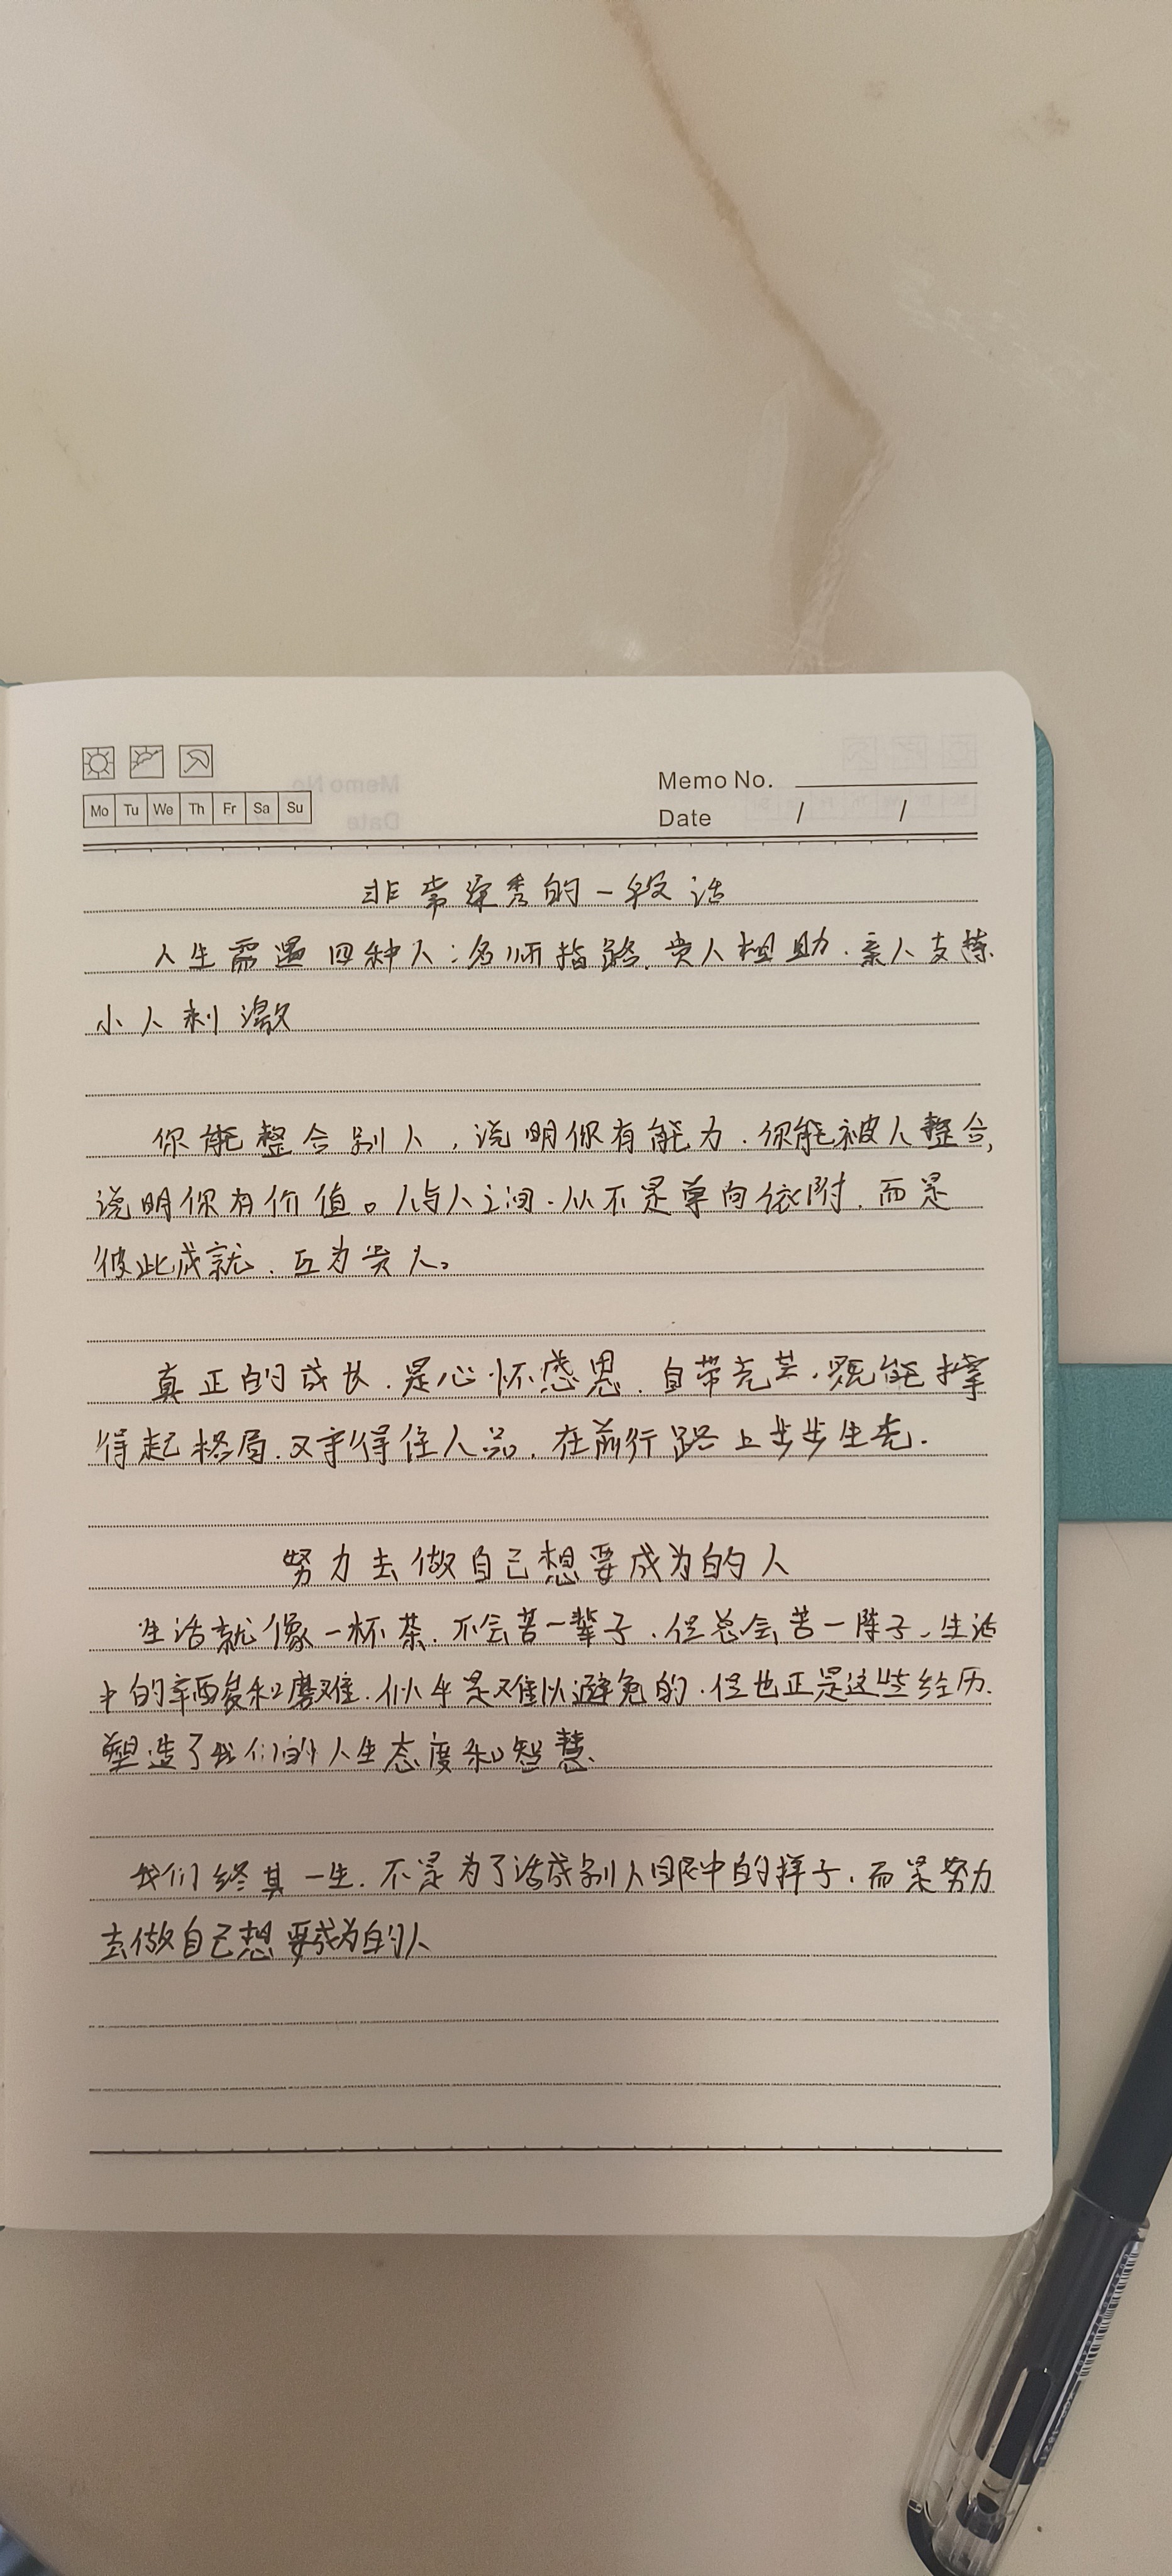 Mo Tu We Th Fr Sa Su
Memo No.
Date / /
非常深秀的一段话
人生需遇四种人:名师指路.贵人相助.亲人支持.
小人刺激
你能整合别人,说明你有能力.你能被人整合,
说明你有价值。人与人之间.从不是单向依附.而是
彼此成就.互为贵人。
真正的成长.是心怀感恩.自带光芒.既能撑
得起格局.又守得住人品.在前行路上步步生光.
努力去做自己想要成为的人
生活就像一杯茶.不会苦一辈子.但总会苦一阵子.生活
中的辛酸和磨难.似乎是难以避免的.但也正是这些经历.
塑造了我们的人生态度和智慧.
我们终其一生.不是为了活成别人眼中的样子.而是努力
去做自己想要成为的人